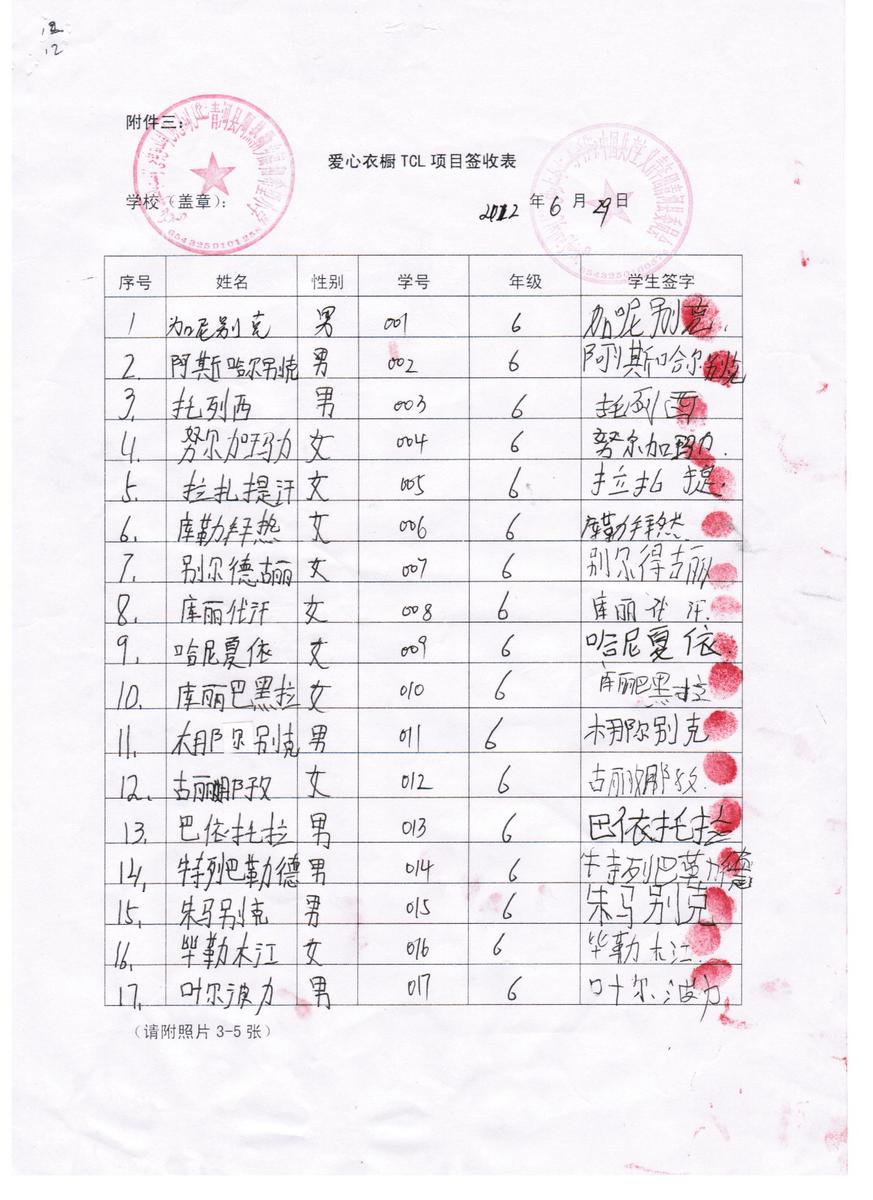 12
附件三：
爱心衣橱 TCL 项目签收表
学校（盖章）：
2012 年 6 月 29 日
6543250101258
序号 姓名 性别 学号 年级 学生签字
1 加尼别克 男 001 6 加呢别克.
2. 阿斯哈尔别克 男 002 6 阿斯哈尔别克
3. 托列西 男 003 6 托列西
4. 努尔加玛力 女 004 6 努尔加玛力.
5. 拉扎提汗 女 005 6 拉扎提.
6. 库勒拜热 女 006 6 库勒拜然.
7. 别尔德古丽 女 007 6 别尔得古丽
8. 库丽代汗 女 008 6 库丽代汗.
9. 哈尼夏依 女 009 6 哈尼夏依
10. 库丽巴黑拉 女 010 6 库丽巴黑拉
11. 木那尔别克 男 011 6 木那尔别克
12. 古丽娜孜 女 012 6 古丽娜孜.
13. 巴依托拉 男 013 6 巴依托拉
14. 特列巴勒德 男 014 6 特列巴勒德
15. 朱马别克 男 015 6 朱马别克
16. 毕勒木江 女 016 6 毕勒木江.
17. 叶尔波力 男 017 6 叶尔波力
（请附照片 3-5 张）